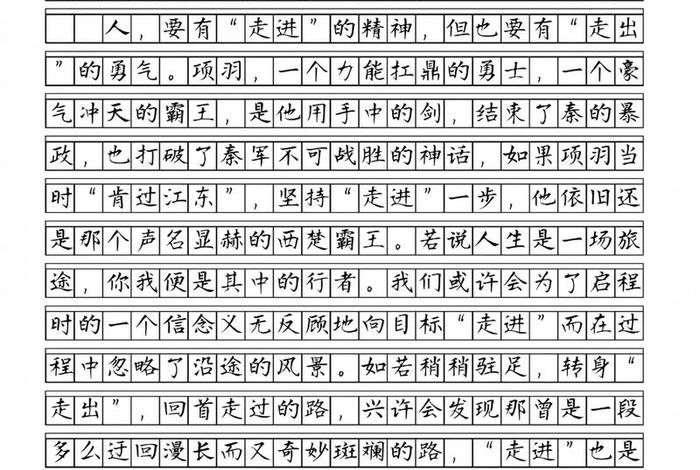 人，要有“走进”的精神，但也要有“走出
”的勇气。项羽，一个力能扛鼎的勇士，一个豪
气冲天的霸王，是他用手中的剑，结束了秦的暴
政，也打破了秦军不可战胜的神话，如果项羽当
时“肯过江东”，坚持“走进”一步，他依旧还
是那个声名显赫的西楚霸王。若说人生是一场旅
途，你我便是其中的行者。我们或许会为了启程
时的一个信念义无反顾地向目标“走进”而在过
程中忽略了沿途的风景。如若稍稍驻足，转身“
走出”，回首走过的路，兴许会发现那曾是一段
多么迂回漫长而又奇妙斑斓的路，“走进”也是